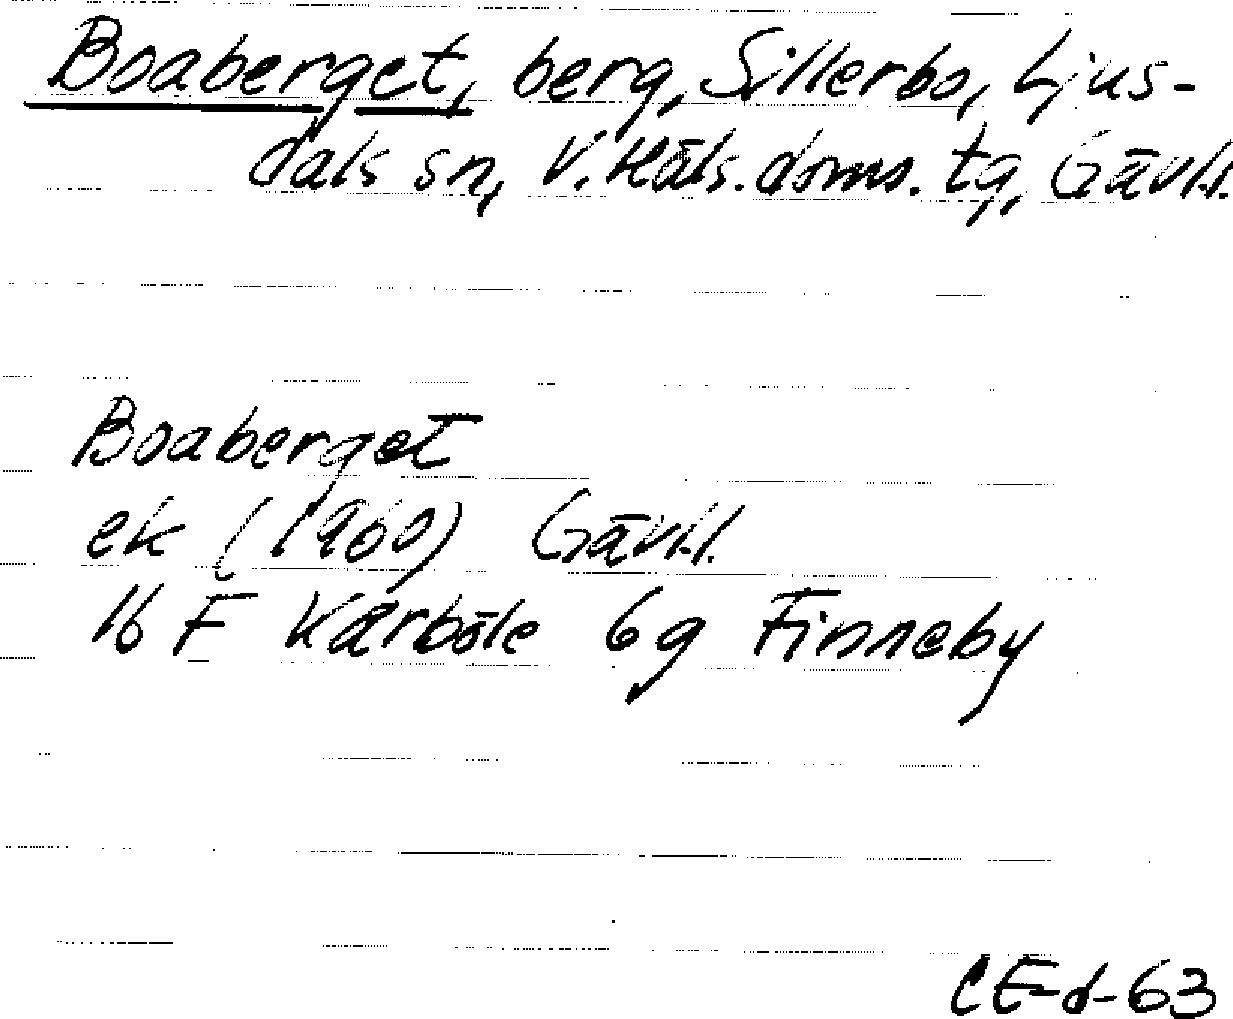 Boaberget, berg, Sillerbo, Ljus-
dals sn, V. Häls. doms. tg, Gävl.l.
Boaberget
ek (1960) Gävl.l.
16 F Kårböle 6g Finneby
CE-d-63